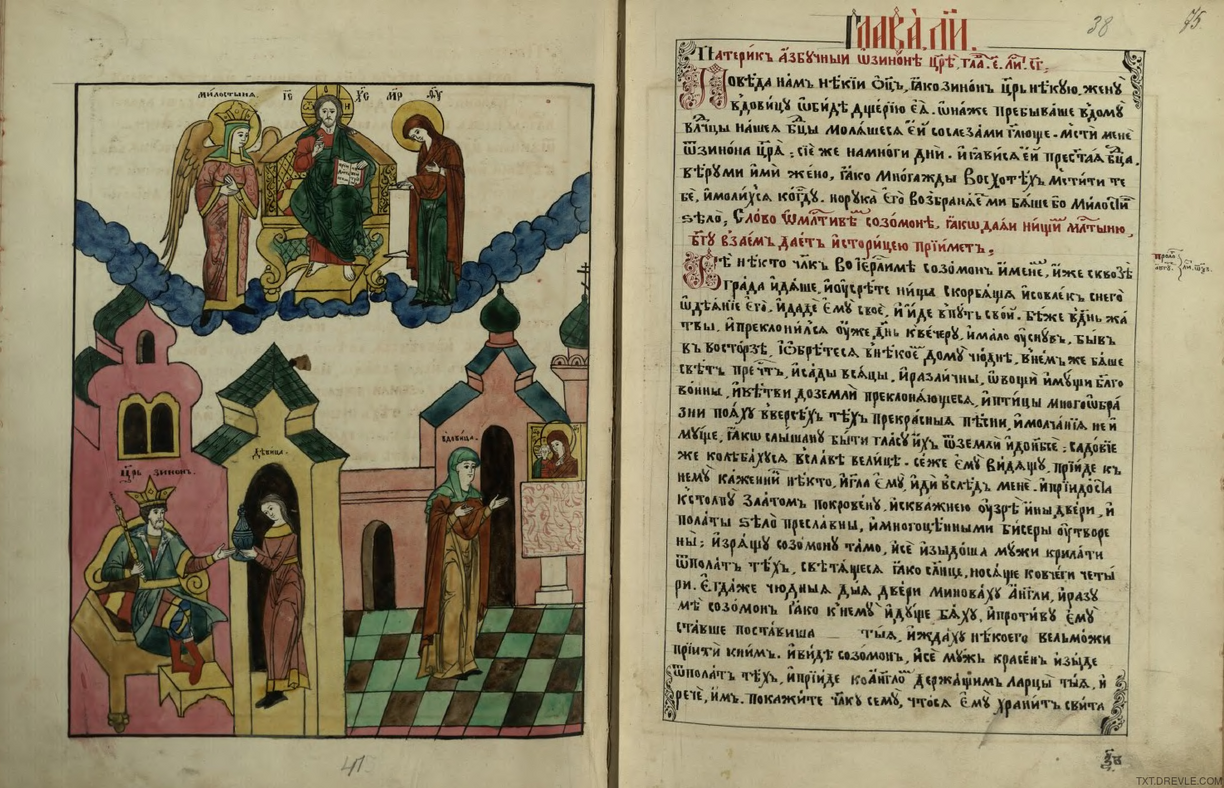 милостыня.
ІС ХС
МР ѲУ
дѣвица.
вдовица.
царь зинонъ.
41
глава. ли҃.
38
75
Патери́къ а҆збучный ѡ҆зино́нѣ цр҃ѣ, гла҃. є҃. ли҃.
Повѣ́да на́мъ нѣ́кїи ѻ҆ц҃ъ, ꙗ҆́ко зино́нъ цр҃ь нѣ́кую, жену
вдови́цу ѡ҆би́дѣ дще́рїю є҆ѧ̀. ѡ҆на́же пребыва́ше вдому̀
влⷣчцы на́шеѧ бц҃ы молѧ́шесѧ є҆́й сослеза́ми гл҃юще. мсти́ менѐ
ѿзино́на цр҃ѧ̀: сїе́ же намно́ги дни̑. и҆ꙗ҆ви́сѧ є҆́й прест҃а́ѧ бц҃а.
вѣ́руми и҆мѝ же́но, ꙗ҆́ко мно́гажды восхотѣ́хъ мсти́ти те
бѐ, и҆моли́хсѧ кобг҃у. норука̀ є҆гѡ̀ возбранѧ́еми бѧ́ше бо ми́лостивъ
ѕѣлѡ̀, Сло́во ѡ҆млⷭ҇тивѣ созо́монѣ, ꙗ҆́кѡ даѧ́и ни́щїи млⷭ҇тыню,
бг҃у взае́мъ дае́тъ и҆стори́цею прїи́метъ.
Бѣ̀ нѣ́кто чл҃къ воїерⷭ҇ли́мѣ созо́монъ и҆́менемъ, и҆́же сквозѣ̀
гра́да и҆дѧ́ше, и҆ѹ҆срѣ́те ни́ща скорбѧ́ща и҆совле́къ снегѡ̀
ѡ҆дѣѧ́нїе є҆гѡ̀, и҆дадѐ є҆му̀ своѐ, и҆ и҆́де впу́ть сво́й. бѣ́же вдн҃ь жа́
твы, и҆преклони́лсѧ ѹ҆́же дн҃ь кве́черу, и҆ма́ло ѹ҆сну́въ, бы́въ
въ восто́рзѣ, и҆ѡ҆брѣ́тесѧ внѣ́коемъ дому̀ чю́днѣ, вне́мъ же бѧ́ше
свѣ́тъ пречⷭ҇тъ, и҆са́ды всѧ́цы, и҆разли́чны, ѡ҆вощи и҆му́щи бл҃го
во́нны, и҆вѣ́тви доземлѝ преклонѧ́ющесѧ, и҆пти́цы многоѡ҆бра́
зни поѧ́ху вверсѣ́хъ тѣ́хъ прекра́сныѧ пѣ́сни, и҆молча́нїѧ не и҆
му́ще, ꙗ҆́кѡ слы́шану бы́ти гла́су и҆́хъ ѿземлѝ и҆донб҃сѐ: садо́вїе
же колѣба́хусѧ всла́вѣ вели́цѣ. се́же є҆му̀ ви́дѧщу, прїи́де къ
нему̀ каже́ни́къ нѣ́кто, и҆гл҃а є҆му̀, и҆дѝ вслѣ́дъ менѐ. и҆прїидо́ста
кстолпу̀ зла́томъ покрове́ну, и҆сква́жнею ѹ҆зрѣ̀ и҆́ны две́ри, и҆
пола́ты ѕѣлѡ̀ пресла́вны, и҆многоцѣ́нными би́серы ѹ҆творе
ны: и҆зрѧ́щу созо́мону та́мо, и҆сѐ и҆зыдо́ша му́жи крила́ти
ѿпола́тъ тѣ́хъ, свѣтѧ́щесѧ ꙗ҆́ко сл҃нце, носѧ́ще ковче́ги четы́
ри. є҆гда́же чю́дныѧ дыѧ две́ри минова́ху а҆́нгл҃и, и҆разу
мѣ̀ созо́монъ ꙗ҆́ко кнему̀ и҆ду́ще бѧ́ху, и҆проти́ву є҆му̀
ста́вше поста́виша ты́ѧ, и҆жда́ху нѣ́коего вельмо́жи
прїитѝ кни́мъ. и҆ви́дѣ созо́монъ, и҆сѐ му́жъ красе́нъ и҆зы́де
ѿпола́тъ тѣ́хъ, и҆прїи́де коа҆́нгл҃ѡмъ держа́щимъ ларцы̀ ты́ѧ, и҆
речѐ, и҆́мъ. покажи́те чл҃ку сему̀, что́сѧ є҆му̀ храни́тъ сви́та
TXT.DREVLE.COM